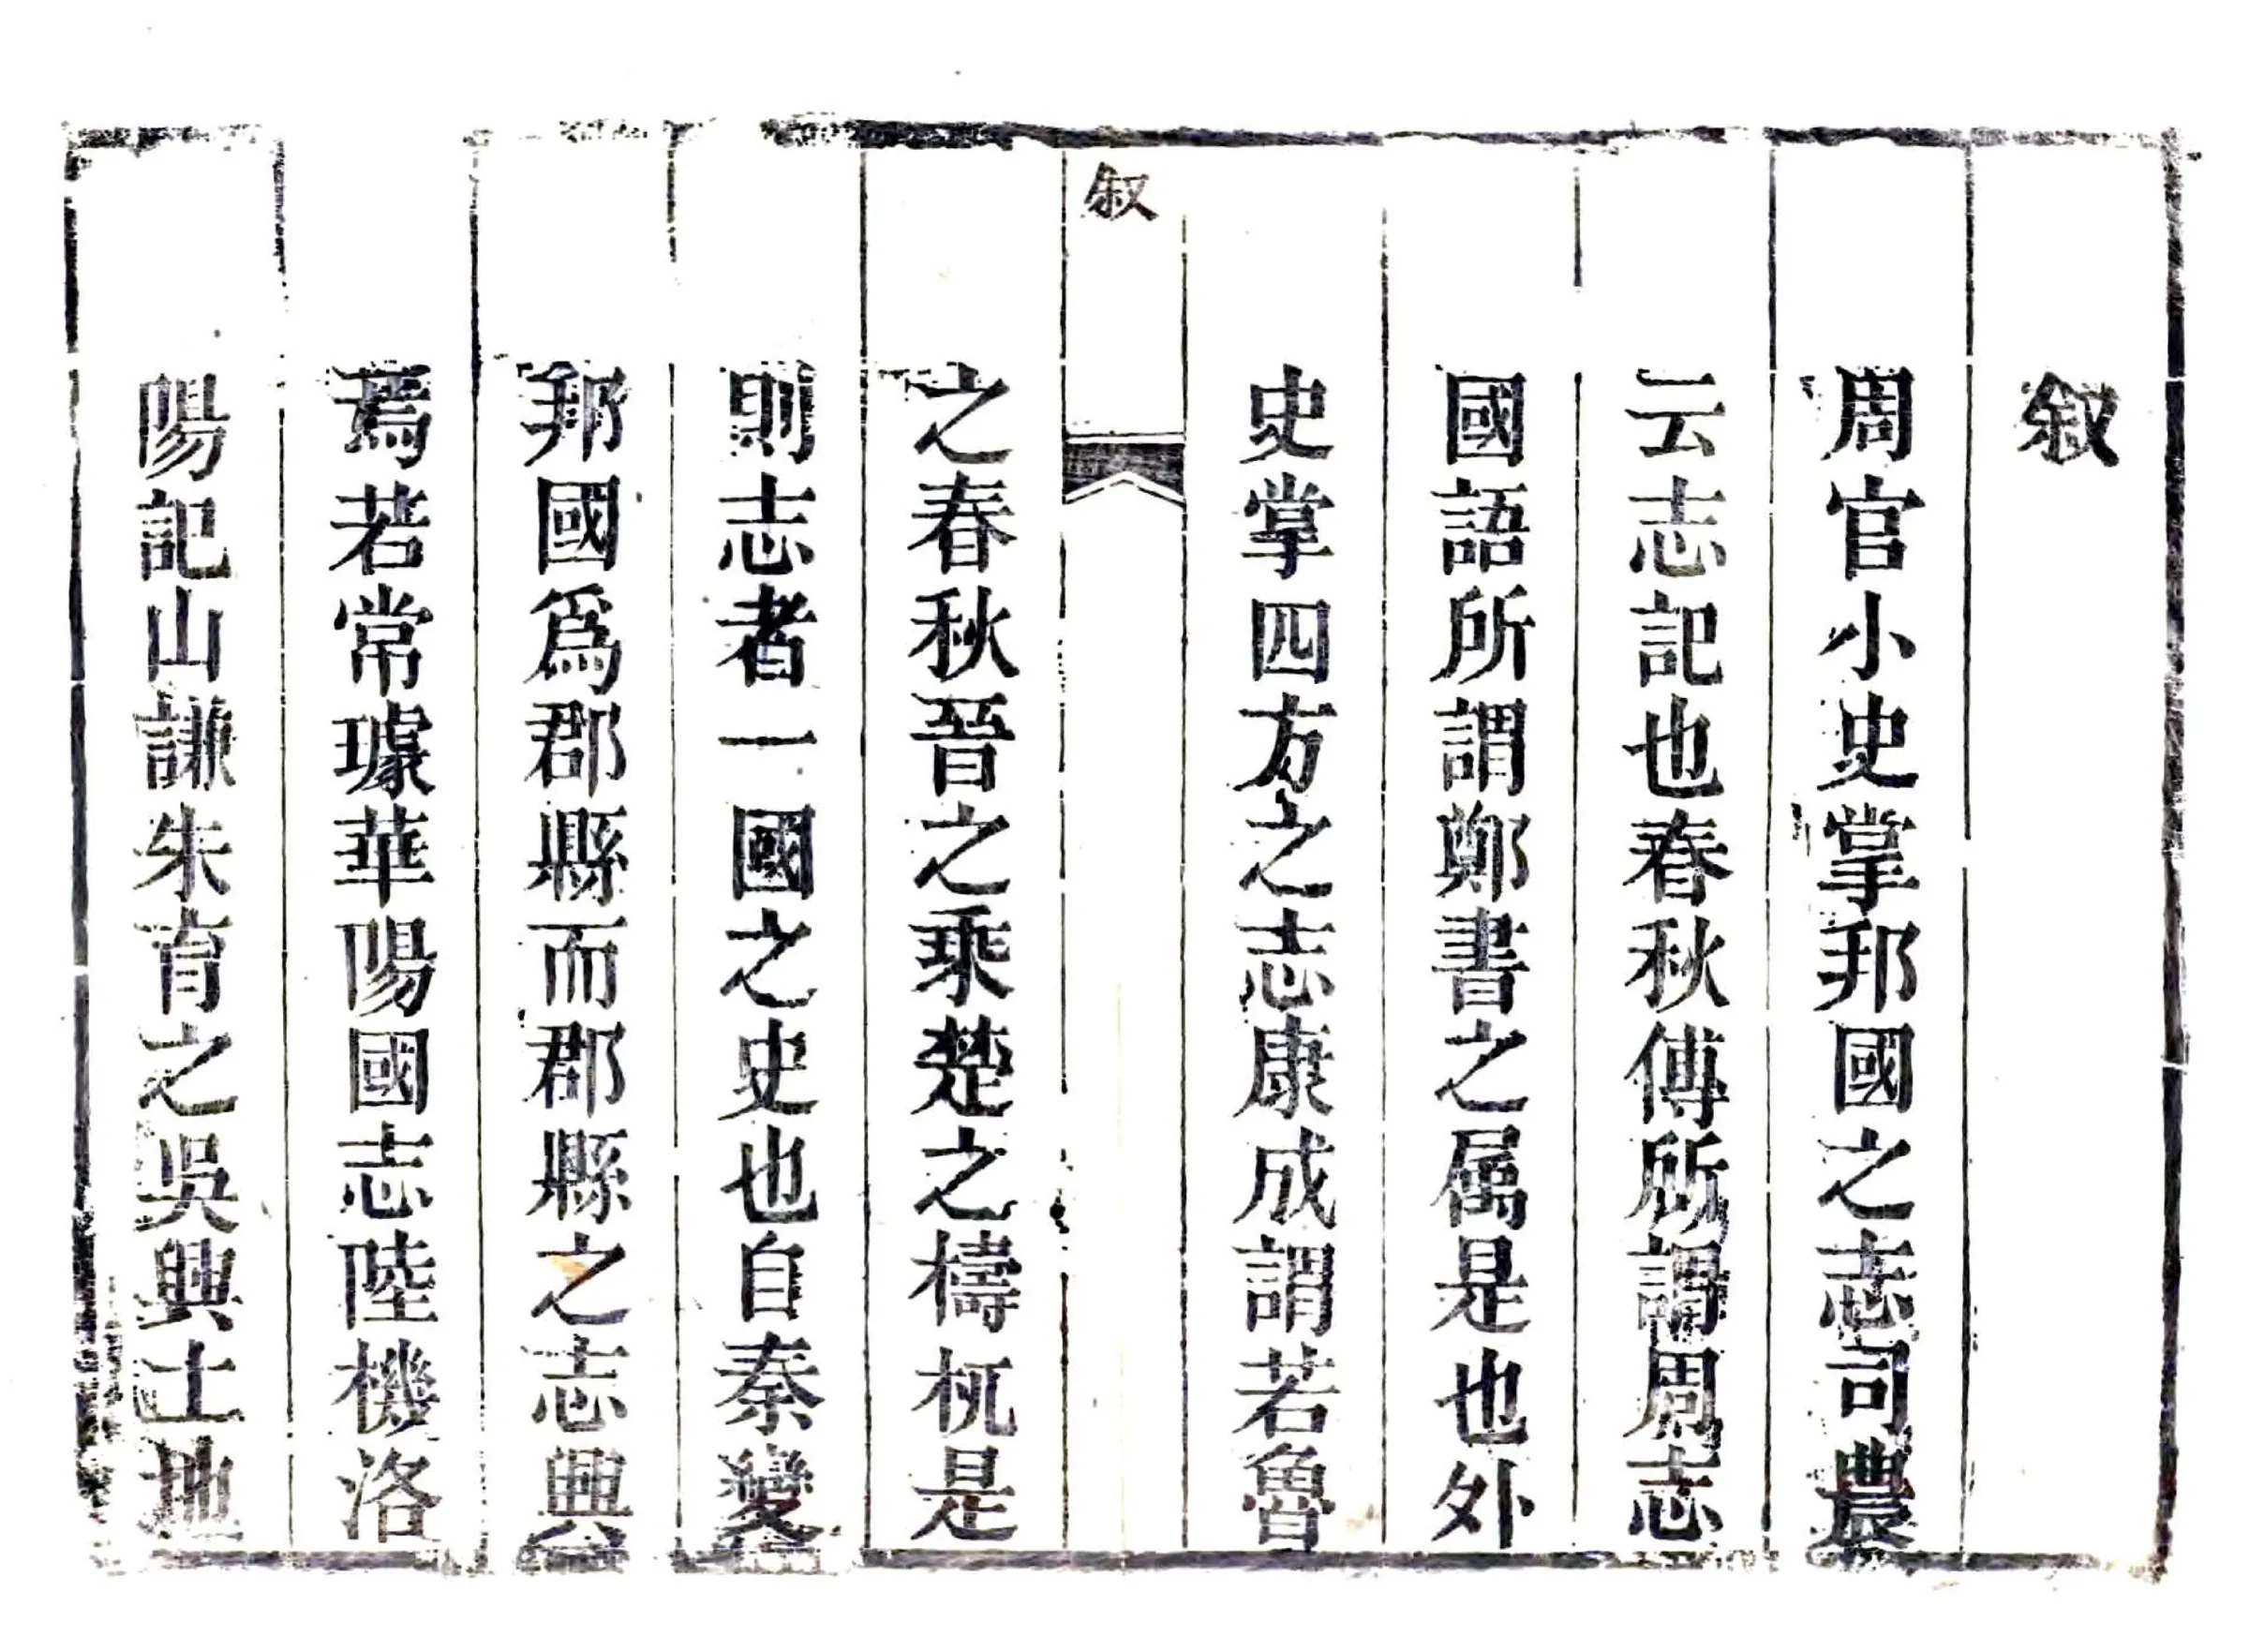 叙
周官小史掌邦國之志司農
云志記也春秋傳所謂周志
國語所謂鄭書之属是也外
史掌四方之志康成謂若魯
叙
之春秋晉之乘楚之檮杌是
則志者一國之史也自秦變
邦國爲郡縣而郡縣之志興
焉若常璩華陽國志陸機洛
陽記山謙朱育之吳興土地